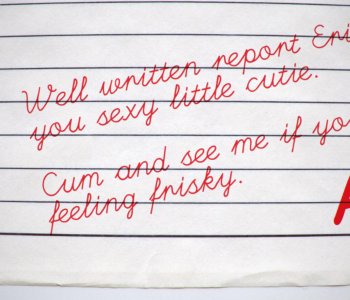 Well written report Eri
you sexy little cutie.
Cum and see me if yo
feeling frisky.